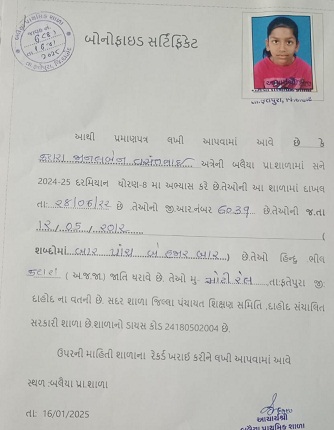 બોનોફાઇડ સર્ટિફિકેટ
આથી પ્રમાણપત્ર લખી આપવામાં આવે છે કે
અત્રેની બલૈયા પ્રા.શાળામાં સને
2024-25 દરમિયાન ધોરણ-8 મા અભ્યાસ કરે છે.તેઓની આ શાળામાં દાખલ
તા: ૨૪/૦૬/૨૨ છે તેઓની જી.આર.નંબર ૬૦૩૧ છે.તેઓની જ.તા
૧૨/૦૫/૨૦૧૨ (
શબ્દોમાં બાર પાંચ બે હજાર બાર ) છે.તેઓ હિન્દુ ભીલ
કટારા ( અ.જ.જા.) જાતિ ધરાવે છે. તેઓ મુ- મોટી રેલ તા:ફતેપુરા જી:
દાહોદ ના વતની છે. સદર શાળા જિલ્લા પંચાયત શિક્ષણ સમિતિ ,દાહોદ સંચાલિત
સરકારી શાળા છે.શાળાનો ડાયસ કોડ 24180502004 છે.
ઉપરની માહિતી શાળાના રેકર્ડ ખરાઇ કરીને લખી આપવામાં આવે
સ્થળ :બલૈયા પ્રા.શાળા
તા: 16/01/2025
આચાર્યશ્રી
બલૈયા પ્રાથમિક શાળા